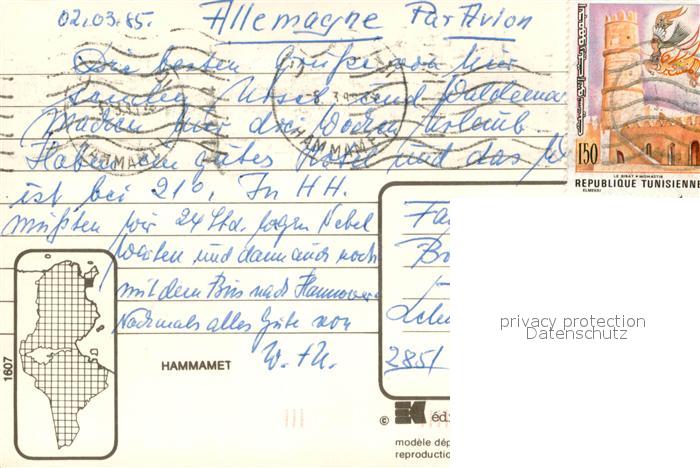 02.03.85. Allemagne Par Avion
Die besten Grüße von hier
senden Ursel und Waldemar
Machen hier drei Wochen Urlaub.
Haben ein gutes Hotel und das
ist bei 21°. In HH.
mußten wir 24 Std. wegen Nebel
warten und dann auch noch
mit dem Bus nach Hannover.
Nochmals alles Gute von
W. + U.
HAMMAMET
1607
2851
©
éd
modèle dép
reproductio
150
LE RIBAT • MONASTIR
REPUBLIQUE TUNISIENNE
ELMEKKI
HAMMAMET
privacy protection
Datenschutz